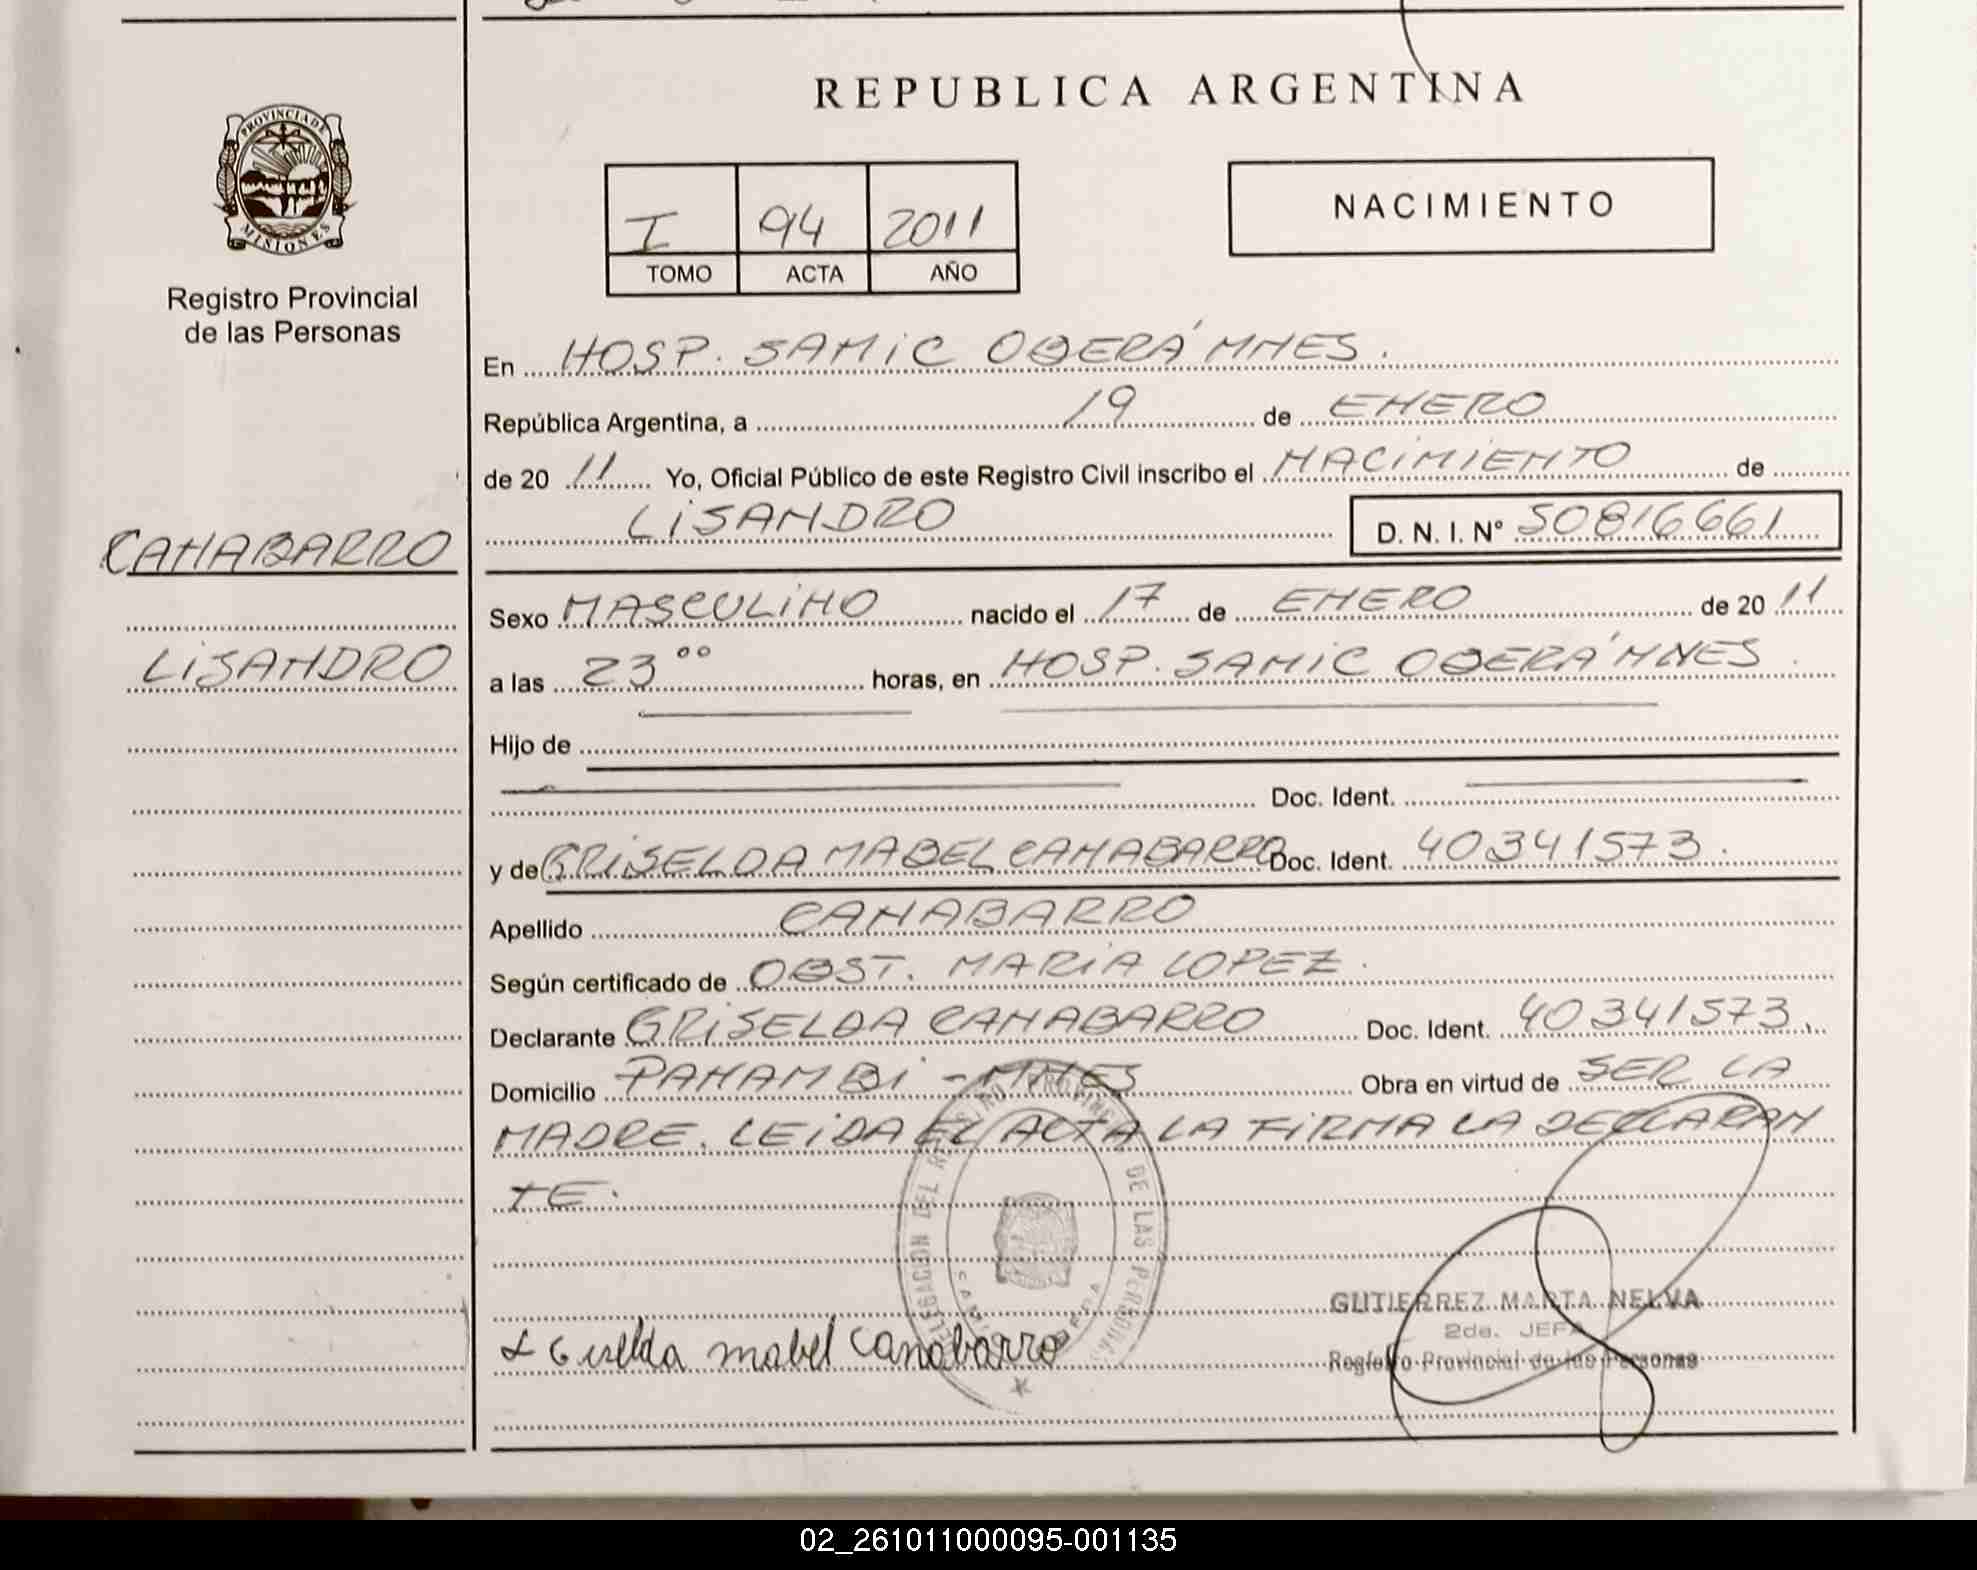 REPUBLICA ARGENTINA
PROVINCIA DE
MISIONES
Registro Provincial
de las Personas
I 94 2011
TOMO ACTA AÑO
NACIMIENTO
En HOSP. SAMIC OBERÁ MNES.
República Argentina, a 19 de ENERO
de 20 11 Yo, Oficial Público de este Registro Civil inscribo el NACIMIENTO de
LISANDRO D. N. I. Nº 50816661
CANABARRO
Sexo MASCULINO nacido el 17 de ENERO de 20 11
LISANDRO
a las 23 00 horas, en HOSP. SAMIC OBERÁ MNES.
Hijo de
Doc. Ident.
y de GRISELDA MABEL CANABARRO Doc. Ident. 40341573.
Apellido CANABARRO
Según certificado de OBST. MARIA LOPEZ.
Declarante GRISELDA CANABARRO Doc. Ident. 40341573.
Domicilio PANAMBI - MNES Obra en virtud de SER LA
MADRE. LEIDA EL ACTA LA FIRMA LA DECLARAN
TE.
DELEGACION DEL REGISTRO PROVINCIAL DE LAS PERSONAS
Griselda mabel Canabarro
GUTIERREZ MARTA NELVA
2da. JEFA
Registro Provincial de las Personas
02_261011000095-001135